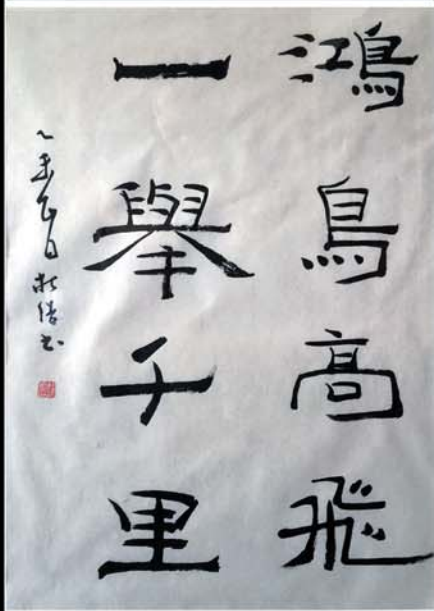 鴻鳥高飛
一舉千里
乙未 日 书